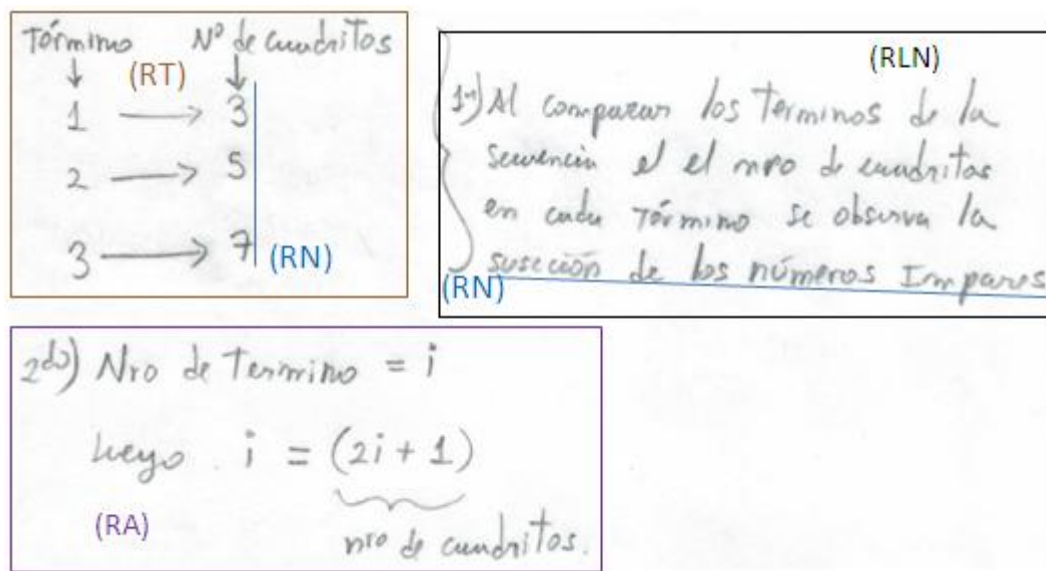 Término N° de cuadritos
(RT)
1 → 3
2 → 5
3 → 7
(RN)
(RLN)
1º) Al comparar los terminos de la
secuencia el el nro de cuadritos
en cada Término se observa la
suseción de los números Impares
(RN)
2do) Nro de Termino = i
luego . i = (2i + 1)
nro de cuadritos.
(RA)